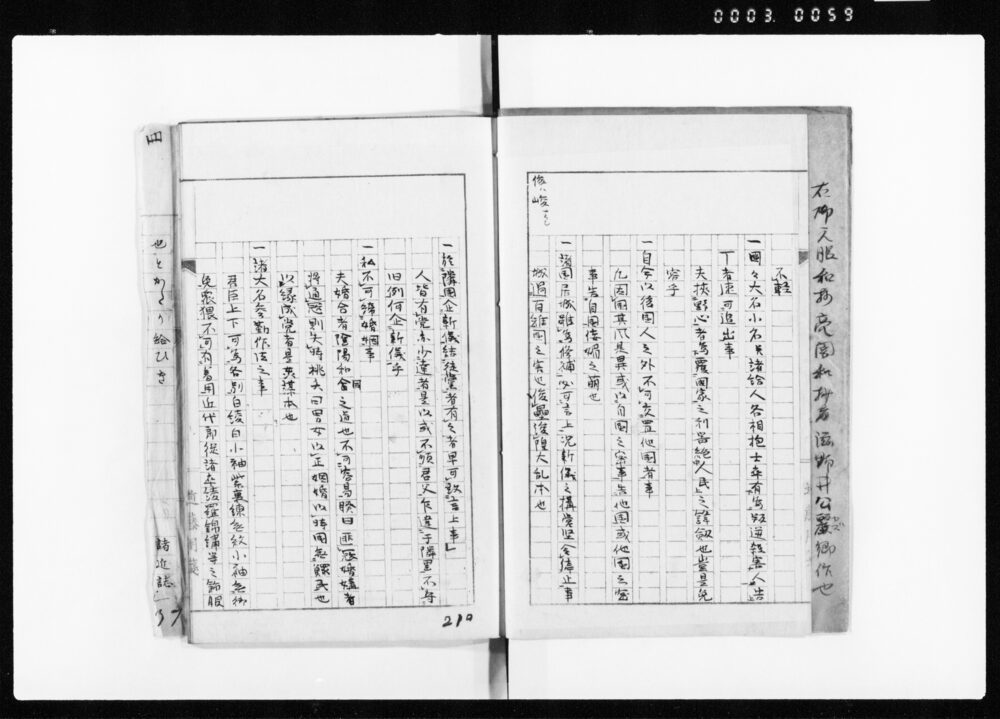 0003.0059
不軽
一国々大名小名并諸給人各相抱士卒有為叛逆殺害人告
丁者速可追出事
夫挟野心者為覆国家之利器絶人民之鋒剣也豈是免
容乎
一自今以後国人之外不可交置他国者事
凡因国其風是異或以自国之密事告他国或他国之密
事告自国佞媚之萌也
一諸国居城雖為修補必可言上況新儀之構営堅令停止事
城過百雉国之害也峻塁浚隍大乱本也
一於隣国企新儀結徒党者有之者早可致言上事」
人皆有党亦少達者是以或不順君父乍違于隣里不守
旧例何企新儀乎
一私不可締婚姻事
夫婚合者陰陽和合之道也不可容易睽曰匪寇婚媾者
将通寇則失時桃夭曰男女以正婚姻以時国無鰥民也
以縁成党者是姦謀本也
一諸大名参勤作法之事
君臣上下可為各別白綾白小袖紫裏練無紋小袖無御
免衆猥不可有着用近代郎従諸卒綾羅錦繡等之飾服
210
四
37